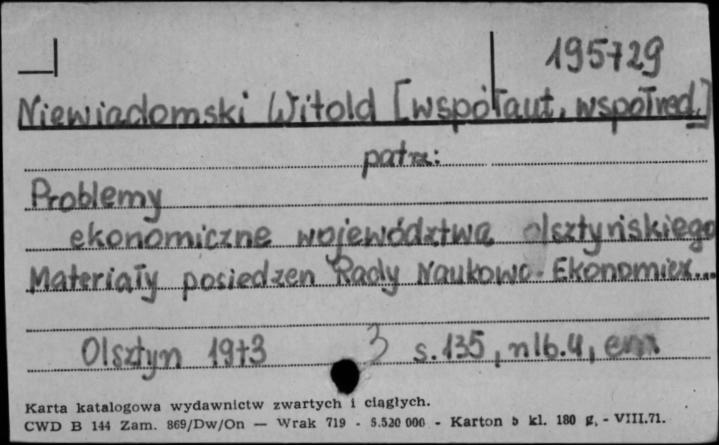 195729
Niewiadomski Witold [współaut, współred.]
patrz:
Problemy
ekonomiczne województwa olsztyńskiego
Materiały posiedzen Rady Naukowo-Ekonomicz...
Olsztyn 1973 s.135, nlb.4,
Karta katalogowa wydawnictw zwartych i ciągłych.
CWD B 144 Zam. 869/Dw/On — Wrak 719 - 5.520 000 - Karton b kl. 180 g. - VIII.71.